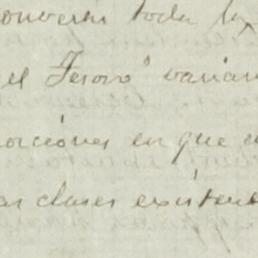 convertir toda la
el Tesoro" varian
orciones en que
as clases existen